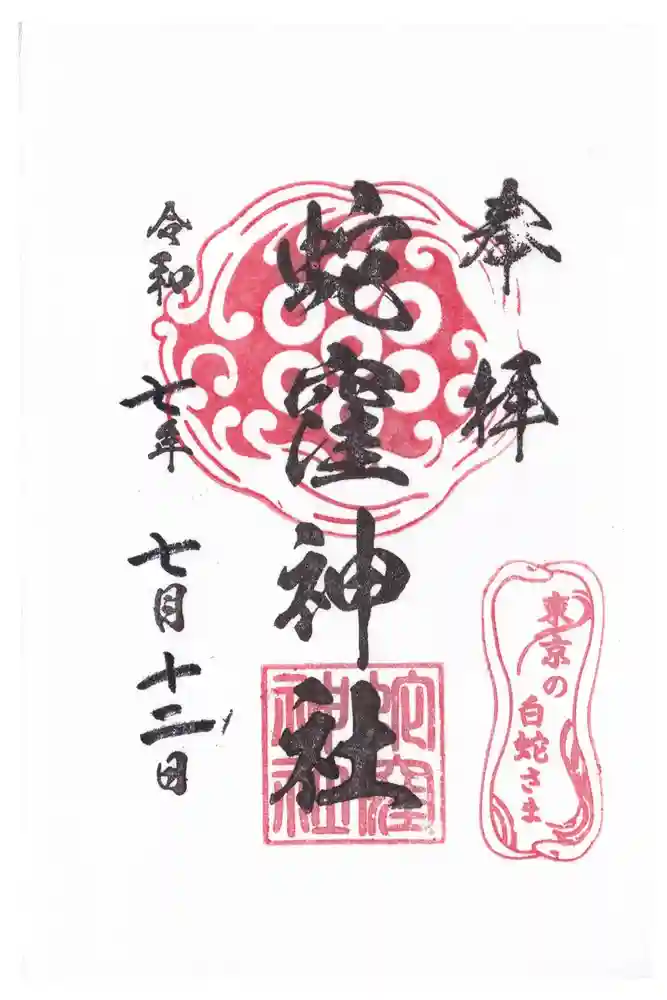 奉拝
蛇窪神社
蛇窪神社
令和七年七月十二日
東京の
白蛇さま